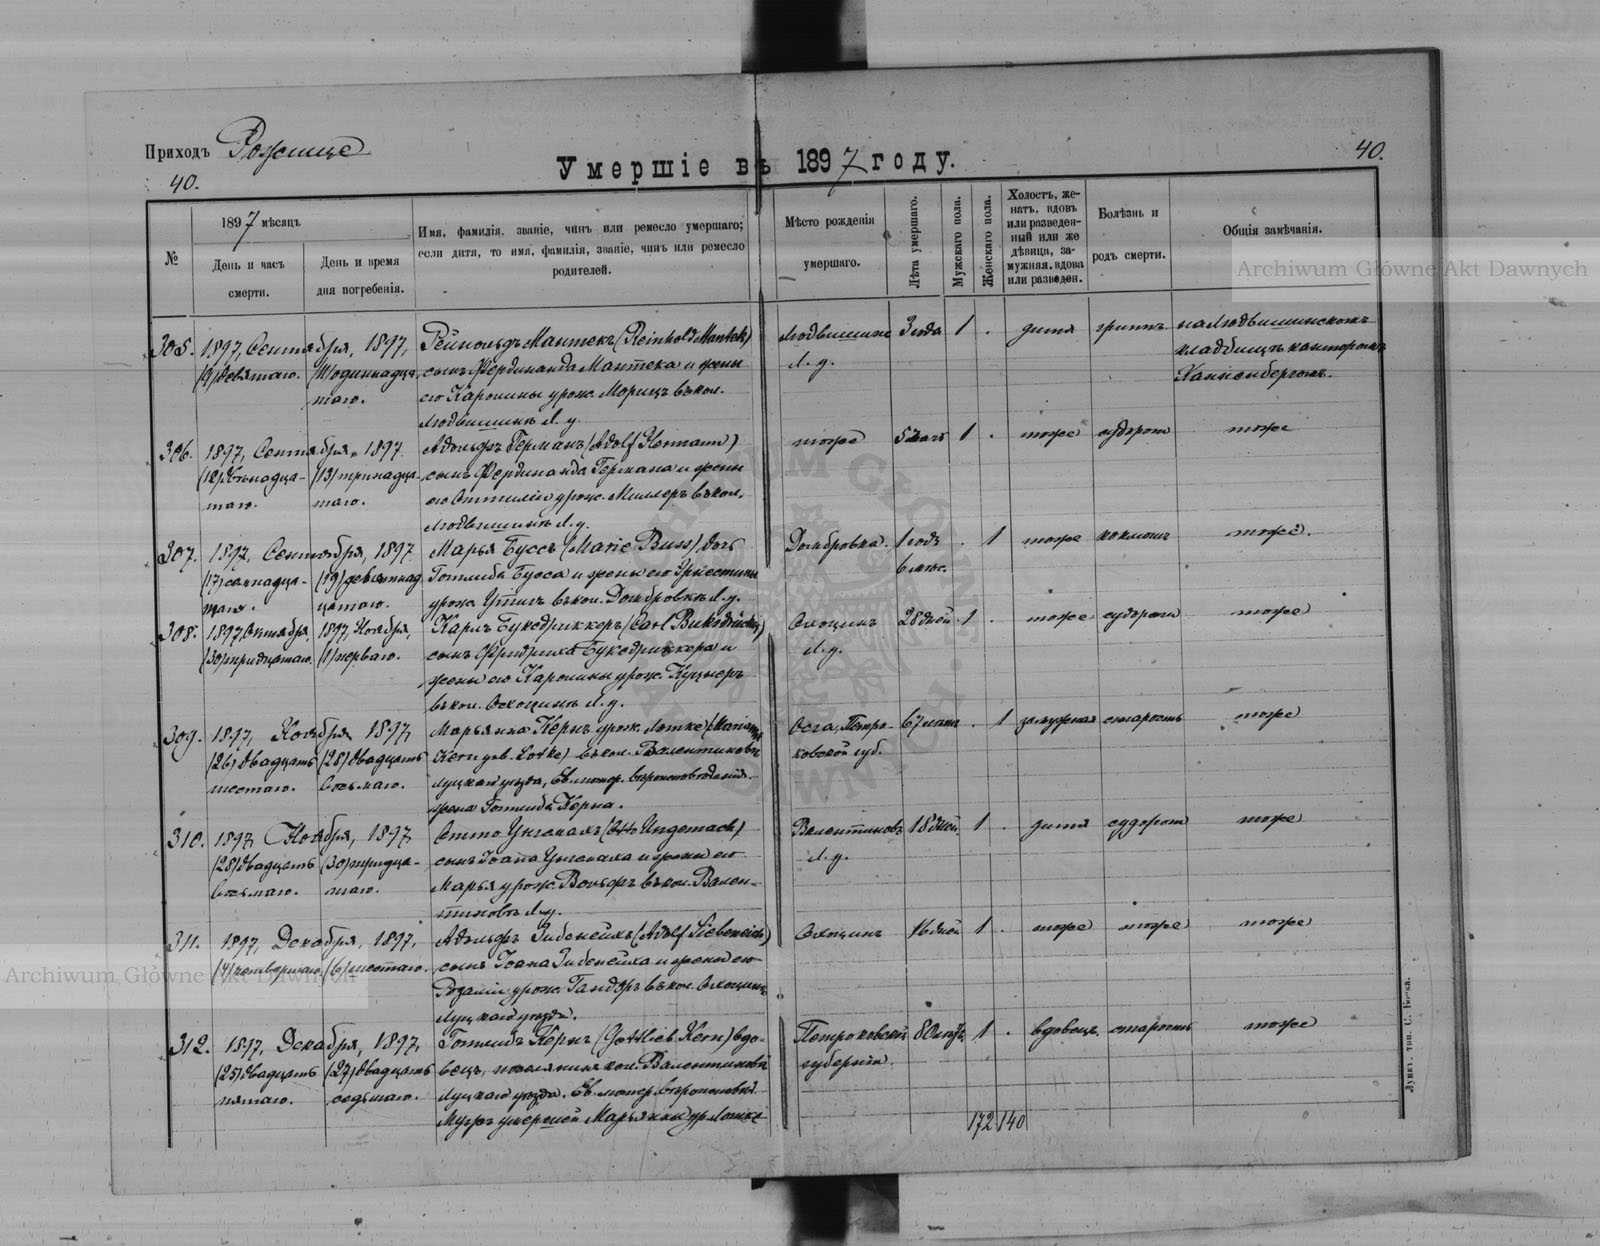 Приходъ Рожище
40.
Умершіе въ 1897 году.
40.
№
1897 мѣсяцъ
День и часъ смерти.
День и время дня погребенія.
Имя, фамилія, званіе, чинъ или ремесло умершаго;
если дитя, то имя, фамилія, званіе, чинъ или ремесло
родителей.
Мѣсто рожденія
умершаго.
Лѣта умершаго.
Мужскаго пола.
Женскаго пола.
Холостъ, же-
натъ, вдовъ
или разведен-
ный или же
дѣвица, за-
мужняя, вдова
или разведен.
Болѣзнь и
родъ смерти.
Общія замѣчанія.
305.
1897, Сентября, 1897,
(9) девятаго.
(11) одиннадца-
таго.
Рейнольдъ Мантекъ (Reinhold Mantek)
сынъ Фердинанда Мантека и жены
его Каролины урож. Морицъ въ кол.
Людвишинъ Л. у.
Л. у.
3 года
1
.
дитя
гриппъ
на Людвишинскомъ
кладбищѣ канторомъ
306.
1897, Сентября, 1897.
(12) двѣнадца-
таго.
(13) тринадца-
таго.
Адольфъ Германъ (Adolf Hermann)
сынъ Фердинанда Германа и жены
его Оттиліи урож. Миллеръ въ кол.
Людвишинъ Л. у.
тоже
1
.
тоже
тоже
307.
1897, Сентября, 1897
(17) семнадца-
таго.
(19) девятнад
цатаго.
Марья Буссъ (Marie Buss) дочь
Готлиба Бусса и жены его
въ кол. Домбровкѣ Л. у.
Домбровка.
1 годъ
6 мѣс.
.
1
тоже
коклюшъ
тоже.
308.
1897, Октября,
(30) тридцатаго.
1897, Ноября,
(1) перваго.
Карлъ Буксдриккеръ (Carl
сынъ Фридриха Буксдриккера и
жены его Каролины урож.
въ кол. Л. у.
Л. у.
28 дней
1
.
тоже
судороги
тоже
309.
1897, Ноября 1897,
(26) двадцать
шестаго.
(28) двадцать
восьмаго.
Марьянна Кернъ урож. Лотке (Marianna
Kern geb. Lotke) въ кол. Валентиновъ
Луцкаго уѣзда, Ев. лютер. вѣроисповѣданія.
жена Готлиба Керна.
Петро-
ковской губ.
67 лѣтъ
.
1
замужняя
старость
тоже
310.
1897, Ноября, 1897,
(28) двадцать
восьмаго.
(30) тридца-
таго.
Отто Унгемахъ (Otto Ungemach)
сынъ Іоана Унгемаха и жены его
Марья урож. Вольфъ въ кол. Вален-
тиновъ Л. у.
Валентиновъ
Л. у.
18 дней
1
.
дитя
судороги
тоже
311.
1897, Декабря, 1897,
(4) четвертаго.
(6) шестаго.
Адольфъ Зибенейхъ (Adolf Siebeneich)
сынъ Іоана Зибенейха и жены его
Розаліи урож. въ кол.
Луцкаго уѣзда.
дней
1
.
тоже
тоже
тоже
312.
1897, Декабря, 1897,
(25) двадцать
пятаго.
(27) двадцать
седьмаго.
Готлибъ Кернъ (Gottlieb Kern) вдо-
вецъ, поселянинъ кол. Валентиновъ
Луцкаго уѣзда. Ев. лютер. вѣроисповѣд.
Мужъ умершей Марьянны ур. Лотке
Петроковской
губерніи.
80 лѣтъ
1
.
вдовецъ
старость
тоже
172 140
Archiwum Główne Akt Dawnych
Archiwum Główne Akt Dawnych